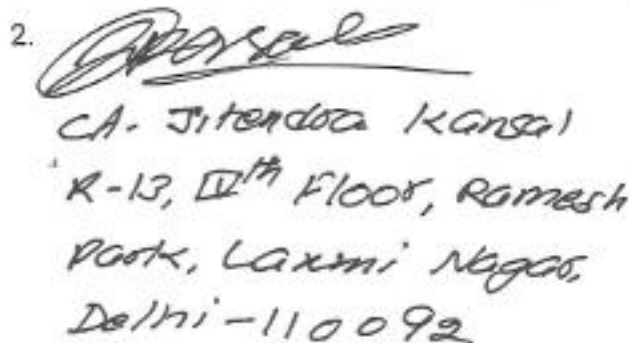 2.
CA. Jitendra Kansal
R-13, IVth Floor, Ramesh
Park, Laxmi Nagar,
Delhi-110092